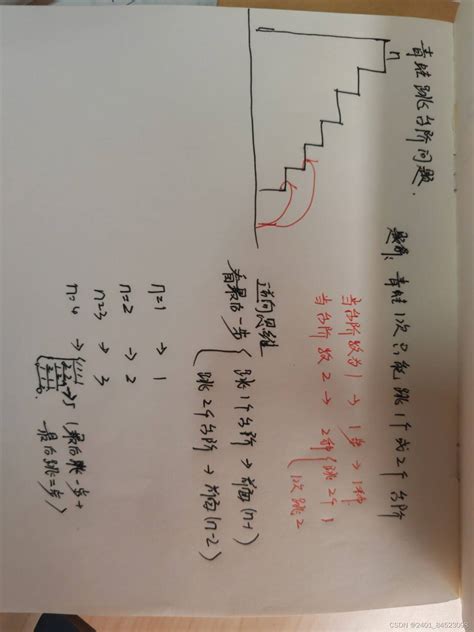 青蛙跳台阶问题.
n
题解: 青蛙1次只能跳1个或2个台阶
当台阶数为1 → 1步 → 1种
当台阶数 2 → 2种 { 跳2个1
1次跳2
逆向思维
看最后一步 { 跳1个台阶 → 前面(n-1)
跳2个台阶 → 前面(n-2)
n=1 → 1
n=2 → 2
n=3 → 3
n=4 → 5 (最后跳一步+
最后跳二步)
CSDN @2401_84523008